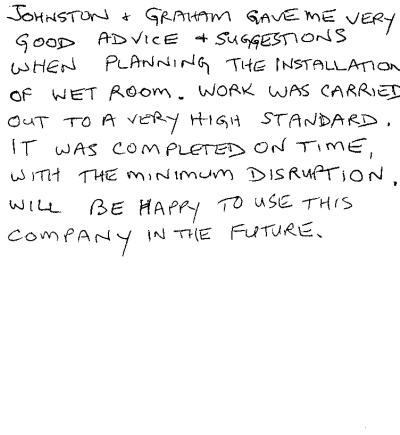 JOHNSTON + GRAHAM GAVE ME VERY
GOOD ADVICE + SUGGESTIONS
WHEN PLANNING THE INSTALLATION
OF WET ROOM. WORK WAS CARRIED
OUT TO A VERY HIGH STANDARD.
IT WAS COMPLETED ON TIME,
WITH THE MINIMUM DISRUPTION.
WILL BE HAPPY TO USE THIS
COMPANY IN THE FUTURE.